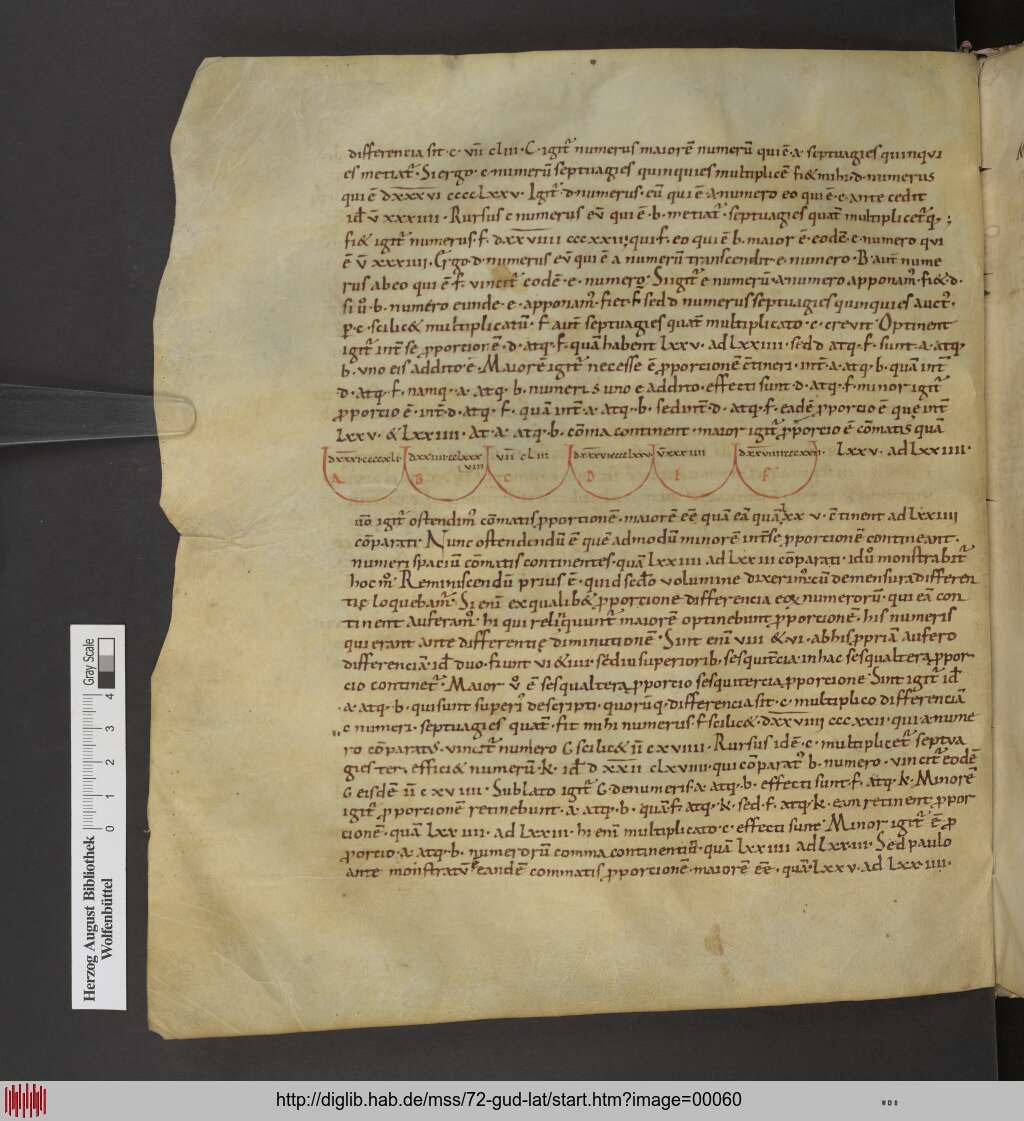 differencia sit · c · vii cliii · C · igit̃ numerus maiorẽ numerũ qui ẽ · a · septuagies quinqui
es metiat̃ · Si ergo · c · numerũ septuagies quinquies multiplicẽ fi& mihi · d · numerus
qui ẽ dxxxvi cccclxxv · Igit̃ · d · numerus · eũ qui ẽ · a · numero eo qui ẽ · e · ante cedit
id̃ v̄ xxxiiii · Rursus c numerus eũ qui ẽ · b · metiat̃ · septuagies quat̃ multiplicet̃ q;
fi& igit̃ numerus · f · dxxviiii cccxxii; qui · f · eo qui ẽ b · maior ẽ · codẽ · e · numero qui
ẽ v̄ xxxiiii · Ergo · d · numerus eũ qui ẽ a numerũ transcendit · e · numero · B · aut̃ nume
rus ab eo qui ẽ · f · vincit̃ eodẽ · e · numero · Si igit̃ e numerũ · a · numero apponam̃ · fi& · d ·
si ũ · b · numero eunde · e · apponam̃ · fiet · f · sed d numerus septuagies quinquies auct̃ ·
p̱ · c · scilic& multiplicatũ · f aut̃ septuagies quat̃ multiplicato · c · crevit · Optinent
igit̃ int̃ se p̱portionẽ · d · atq; · f · quã habent lxxv · ad lxxiiii · sed d atq; · f · sunt · a · atq;
b · uno eis addito · e · Maiorẽ igit̃ necesse ẽ p̱portionẽ c̃tineri · int̃ · a · atq; · b · quã int̃
d · atq; · f · namq; · a · atq; · b · numeris uno e addito · effecti sunt · d · atq; · f · minor igit̃
p̱portio ẽ · int̃ · d · atq; · f · quã int̃ · a · atq; · b · sed int̃ · d · atq; · f · eadẽ p̱portio ẽ que int̃
lxxv · & lxxiiii · At · a · atq; · b · cõma continent · maior igit̃ p̱portio ẽ cõmatis quã
lxxv · ad lxxiiii ·
dxxxi · ccccxli · dxxiiii · cclxxxviii vii cliii dxxxvi · cccclxxv v̄xxxiiii dxxviiii · cccxxii ·
A B C D E F
igit̃ ostendim̃ cõmatis p̱portionẽ · maiorẽ eẽ quã eã quã lxxv · c̃tinent ad lxxiiii
cõparati · Nunc ostendendũ ẽ quẽ admodũ minorẽ int̃ se p̱portionẽ contineant ·
numeri spaciũ cõmatis continentes · quã lxxiiii ad lxxiii cõparati · id ũ monstrabit̃
hoc m̃ · Reminiscendũ prius ẽ · quid scd̃o volumine dixerim̃ cũ de mensura differen
tie loquebam̃ · Si enĩ ex qualib& p̱portione differencia eoꝝ numerorũ · qui eã con
tinent auferam̃ · hi qui reliquunt̃ maiorẽ optinebunt p̱portionẽ · his numeris
qui erant ante differentie diminutionẽ · Sint enĩ viii & vi · ab his p̱priam aufero
differenciã · id̃ duo · fiunt vi & iiii · sed in superiorib; sesquit̃cia · in hac sesqualtera p̱por
cio continet̃ · Maior ũ ẽ sesqualtera p̱portio sesquitercia p̱portione · Sint igit̃ id̃
· a · atq; · b · qui sunt superi descripti · quorũ q; differencia sit · c · multiplico differenciã
c numeri · septuagies quat̃ · fit mihi numerus · f · scilic& · dxxviiii cccxxii · qui · a · nume
ro cõparatus · vincit̃ numero G scilic& ii cxviiii · Rursus idẽ · c · multiplicet̃ septua
gies ter · effici& numerũ · k · id̃ d xxii clxviiii · qui cõparat̃ b · numero · vincit̃ eodẽ
G eisdẽ ii cxviiii · Sublato igit̃ G · de numeris · a · atq; · b · effecti sunt · f · atq; · k · Minorẽ
igit̃ p̱portionẽ retinebunt · a · atq; · b · quã · f · atq; · k · sed · f · atq; · k · eam retinent p̱por
tionẽ · quã lxxiiii · ad lxxiii · hi enĩ multiplicato · c · effecti sunt · Minor igit̃ ẽ p̱
portio · a · atq; · b · numerorũ comma continentiũ · quã lxxiiii ad lxxiii · Sed paulo
ante monstratũ ẽ eandẽ commatis p̱portionẽ · maiorẽ eẽ · quã · lxxv · ad lxxiiii ·
Herzog August Bibliothek
Wolfenbüttel
0 1 2 3 4
Gray Scale
http://diglib.hab.de/mss/72-gud-lat/start.htm?image=00060